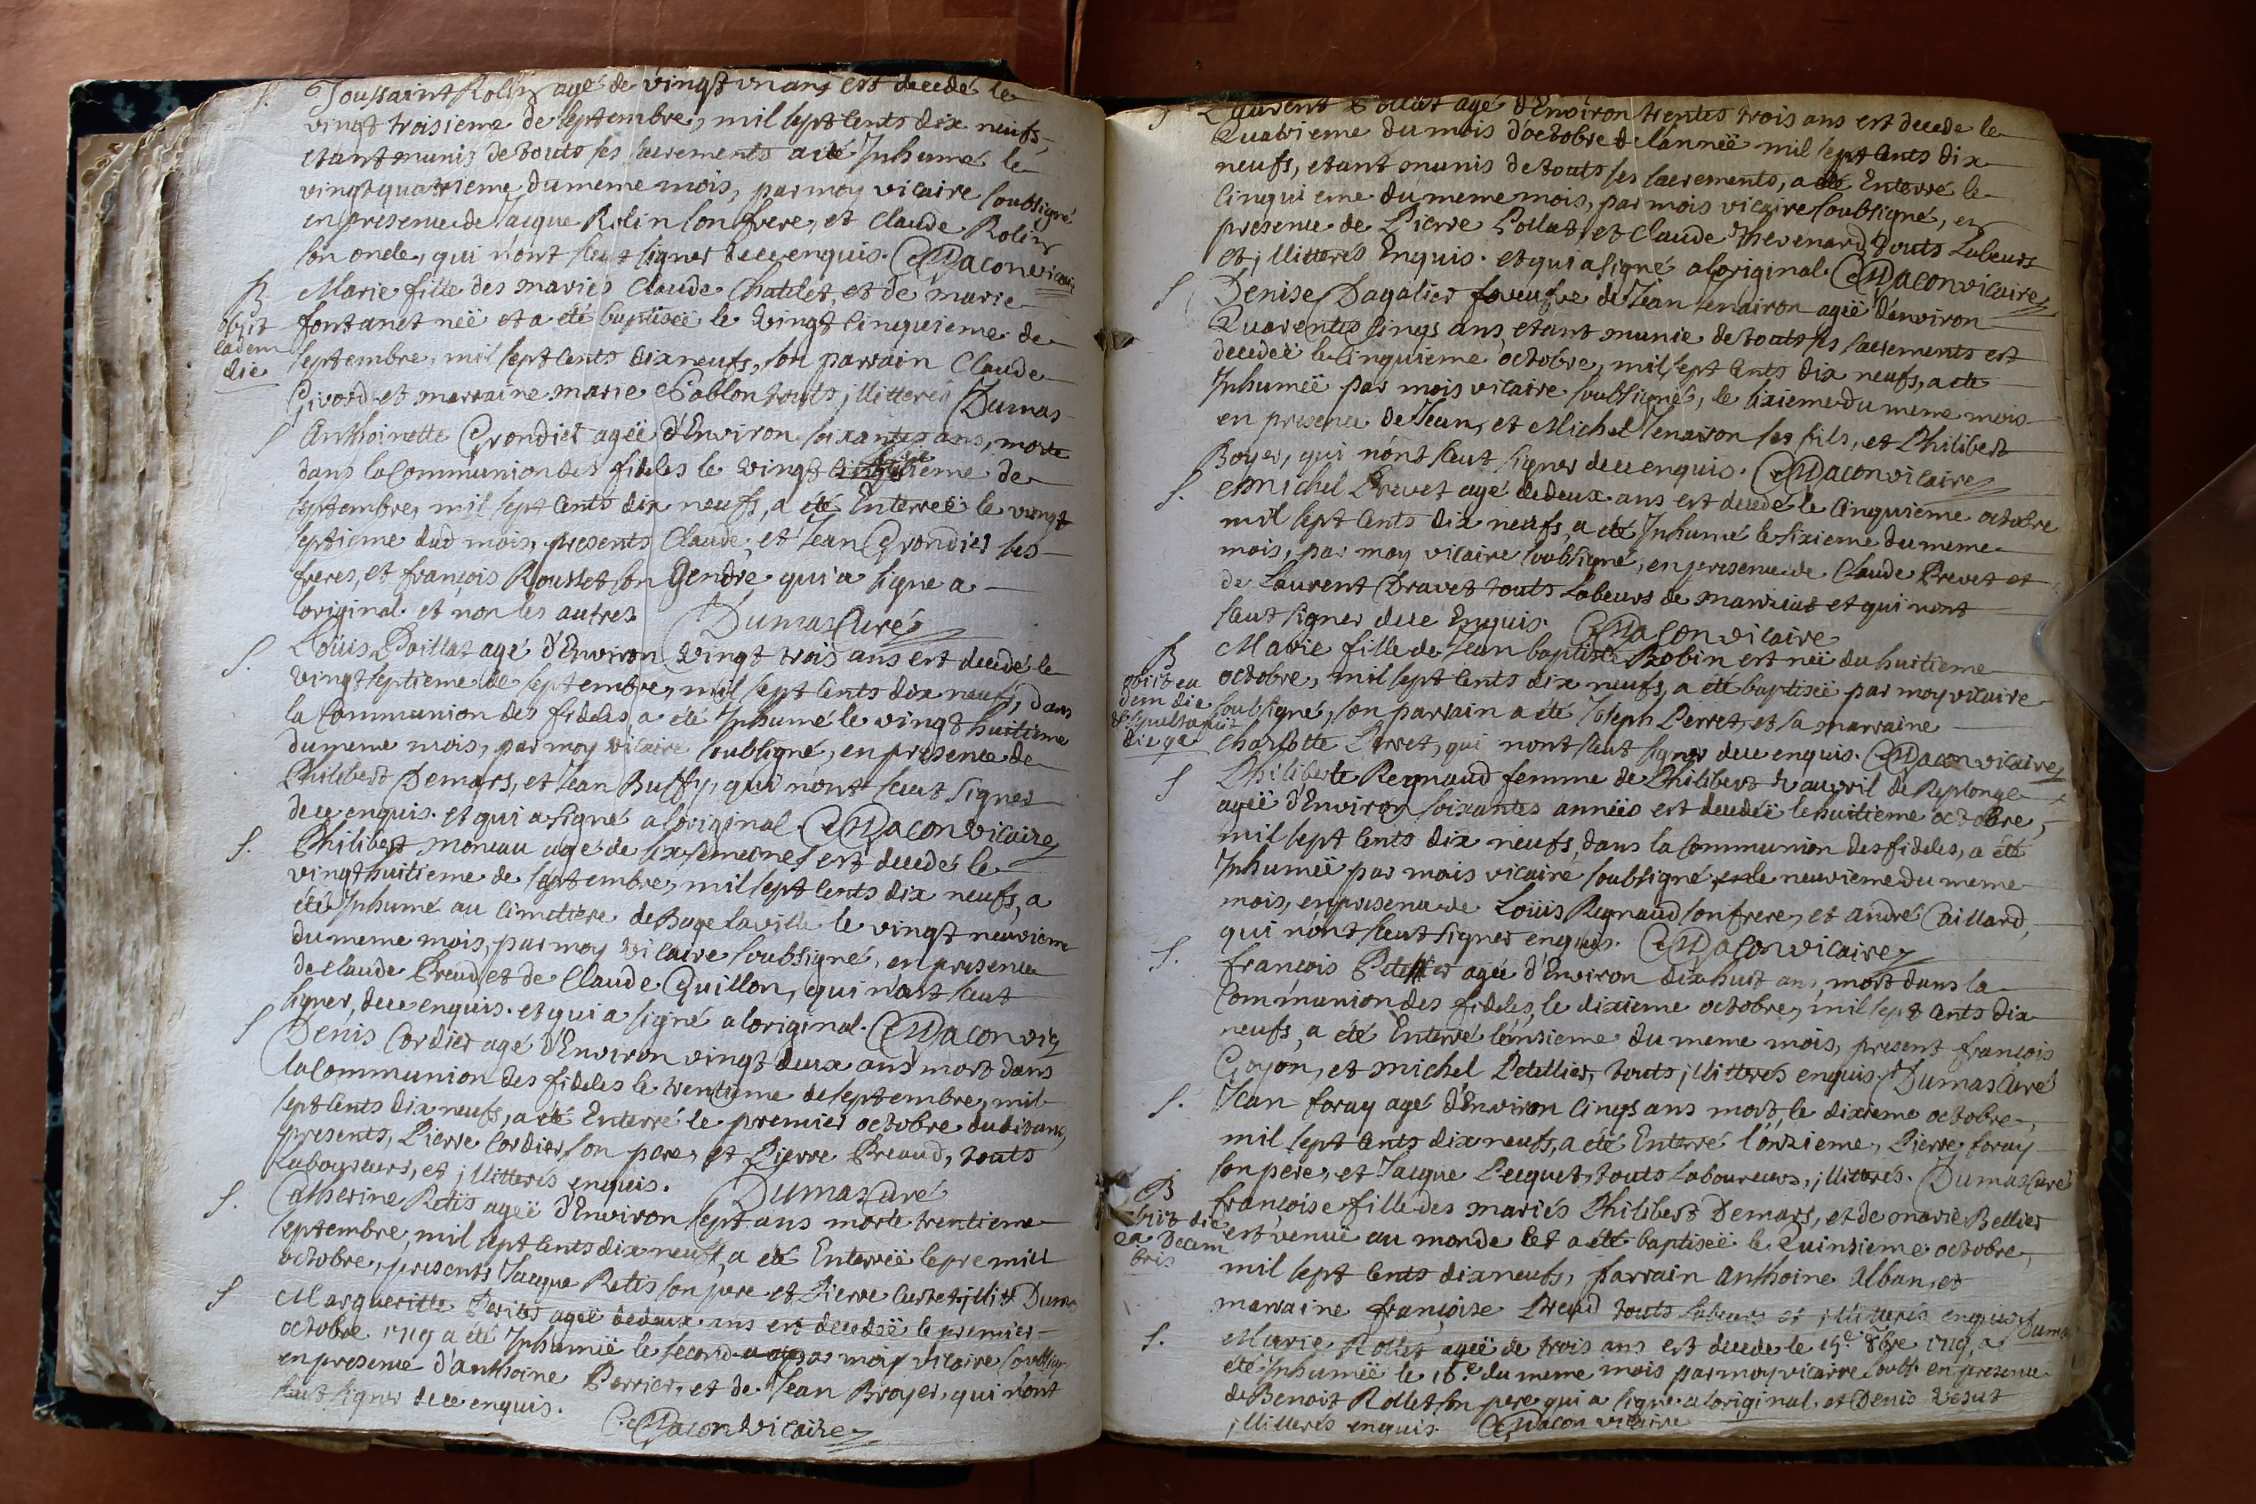 S. Toussaint Rolin agé de vingt un ans est decedé le
vingt troisieme de septembre, mil sept cents dix neufs,
etant munis de touts ses sacrements a eté Inhumé le
vingt quatrieme du meme mois, par moy vicaire soubsigné
en presence de Jacque Rolin son frere, et Claude Rolin
son oncle, qui n'ont sceut signer de ce enquis. Macon vicaire
B Marie fille des mariés Claude Chatelet, et de marie
obiit fontanet néë et a eté baptiseë le vingt cinquieme de
eadem septembre, mil sept cents dix neufs, son parrain Claude
die Givord et marraine marie Poblon touts illitterés Dumas
S Anthoinette Grondier ageë d'Environ soixantes ans, morte
dans la Communion des fideles le vingt sixieme de
septembre, mil sept cents dix neufs, a eté Enterreë le vingt
septieme dud mois, presents Claude, et Jean Grondier ses
freres, et françois Rousset son Gendre qui a signe a
loriginal. et non les autres. Dumas Curé
S. Loüis Paillas agé d'Environ vingt trois ans est decedé le
vingt septieme de septembre, mil sept cents dix neufs, dans
la Communion des fideles a eté Inhumé le vingt huitieme
du meme mois, par moy vicaire soubsigné, en presence de
Philibert Demars, et Jean Buffy, qui n'ont sceut signer
de ce enquis. et qui a signé a loriginal. Macon vicaire
S. Philibert moneau agé de six semeines est decedé le
vingt huitieme de septembre, mil sept cents dix neufs, a
eté Inhumé au Cimetiere de Bage la ville le vingt neuvieme
du meme mois, par moy vicaire soubsigné, en presence
de Claude Preud et de Claude Guillon, qui n'ont sceut
signer, de ce enquis. et qui a signé a loriginal. Macon vic
S Denis Cordier agé d'Environ vingt deux ans mort dans
la Communion des fideles le trentieme de septembre, mil
sept cents dix neufs, a eté Enterré le premier octobre dudit ans,
presents, Pierre Cordier son pere, et Pierre Preaud, touts
Laboureurs, et illitterés enquis. Dumas Curé
S. Catherine Retis ageë d'Environ sept ans morte trentieme
septembre, mil sept cents dix neufs, a eté Enterreë le premier
octobre, presents Jacque Retis son pere et Pierre illitt Dumas
S Margueritte Perrier ageë de deux ans est decedeë le premier
octobre 1719 a eté Inhumeë le second par moy vicaire soubsig
en presence d'anthoine Perrier, et de Jean Broyer, qui n'ont
sceut signer de ce enquis.
Macon vicaire
S Laurent Pollet agé d'Environ trentes trois ans est decede le
Quatrieme du mois d'octobre de l'anneë mil sept cents dix
neufs, etant munis de touts ses sacrements, a eté Enterré le
Cinquieme du meme mois, par mois vicaire soubsigné, en
presence de Pierre Pollet, et Claude thevenard touts Labeurs
et illitterés Enquis. et qui a signé a loriginal. Macon vicaire
S Denise Dagalier veufve de Jean tenairon ageë d'environ
Quarentes Cinqs ans, etant munie de touts ses sacrements est
decedeë le Cinquieme octobre, mil sept cents dix neufs, a eté
Inhumeë par mois vicaire soubsigné, le sixieme du meme mois
en presence de Jean, et Michel tenairon ses fils, et Philibert
Boyer, qui n'ont sceut signer de ce enquis. Macon vicaire
S. Michel Prevet agé de deux ans est decedé le Cinquieme octobre
mil sept cents dix neufs, a eté Inhumé le sixieme du meme
mois, par moy vicaire soubsigné, en presence de Claude Prevet et
de Laurent Dravet touts Labeurs de manziat et qui nont
sceut signer de ce Enquis. Macon vicaire
B Marie fille de Jean baptiste Robin est neë du huitieme
obiit ea octobre, mil sept cents dix neufs, a eté baptiseë par moy vicaire
dem die soubsigné, son parrain a eté Joseph Perret, et sa marraine
& sepulta fuit Charlotte Perret, qui nont sceut signer de ce enquis. Macon vicaire
die 9a
S Philiberte Reynaud femme de Philibert vauvril de Replonge
ageë d'Environ soixantes anneës est decedeë le huitieme octobre,
mil sept cents dix neufs, dans la Communion des fideles, a eté
Inhumeë par mois vicaire soubsigné le neuvieme du meme
mois, en presence de Loüis Reynaud son frere, et andré Caillard
qui n'ont sceut signer enquis. Macon vicaire
S. françois agé d'Environ dix huit ans, mort dans la
Communion des fideles, le dixieme octobre, mil sept cents dix
neufs, a eté Enterré l'onsieme du meme mois, present françois
Goyon, et michel Petellier, touts illitterés enquis. Dumas Curé
S. Jean foray agé d'Environ Cinqs ans mort, le dixieme octobre,
mil sept cents dix neufs, a eté Enterré l'onzieme, Pierre foray
son pere, et Jacque Pecquet, touts Laboureurs, illitterés. Dumas Curé
B françoise fille des mariés Philibert Demars, et de marie Bellier
obiit die est venuë au monde et a eté baptiseë le Quinsieme octobre,
2a Decem mil sept cents dix neufs, parrain anthoine alban, et
bris marraine françoise Preud touts Labeurs et illitterés enquis Dumas
S. Marie Rollet ageë de trois ans est decede le 15e 8bre 1719, a
eté Inhumeë le 16.e du meme mois par moy vicaire soubs. en presence
de Benoit Rollet son pere qui a signe a loriginal. et Denis vesut
illitterés enquis. Macon vicaire